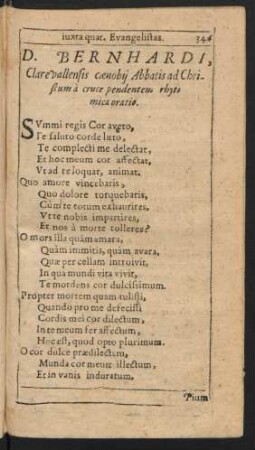 iuxta quat. Evangelistas. 344
D. BERNHARDI,
Clarevallensis cœnobij Abbatis ad Chri-
stum à cruce pendentem rhyt
mica oratio.
SVmmi regis Cor aveto,
Te saluto corde læto,
Te complecti me delectat,
Et hoc meum cor affectat,
Vt ad te loquar, animat.
Quo amore vincebaris,
Quo dolore torquebaris,
Cùm te totum exhaurires,
Vt te nobis impartires,
Et nos à morte tolleres?
O mors illa quàm amara,
Quàm immitis, quàm avara,
Quæ per cellam introivit,
In qua mundi vita vivit,
Te mordens cor dulcissimum.
Propter mortem quam tulisti,
Quando pro me defecisti
Cordis mei cor dilectum,
In te meum fer affectum,
Hoc est, quod opto plurimum.
O cor dulce prædilectum,
Munda cor meum illectum,
Et in vanis induratum.
Pium